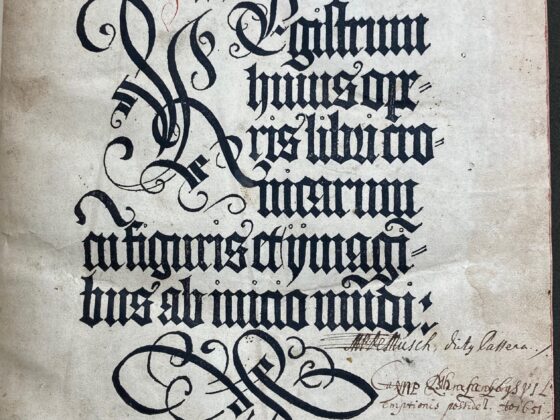 Registrum
huius ope=
ris libri cro=
nicarum
cū figuris et ymagī=
bus ab inicio mūdi: